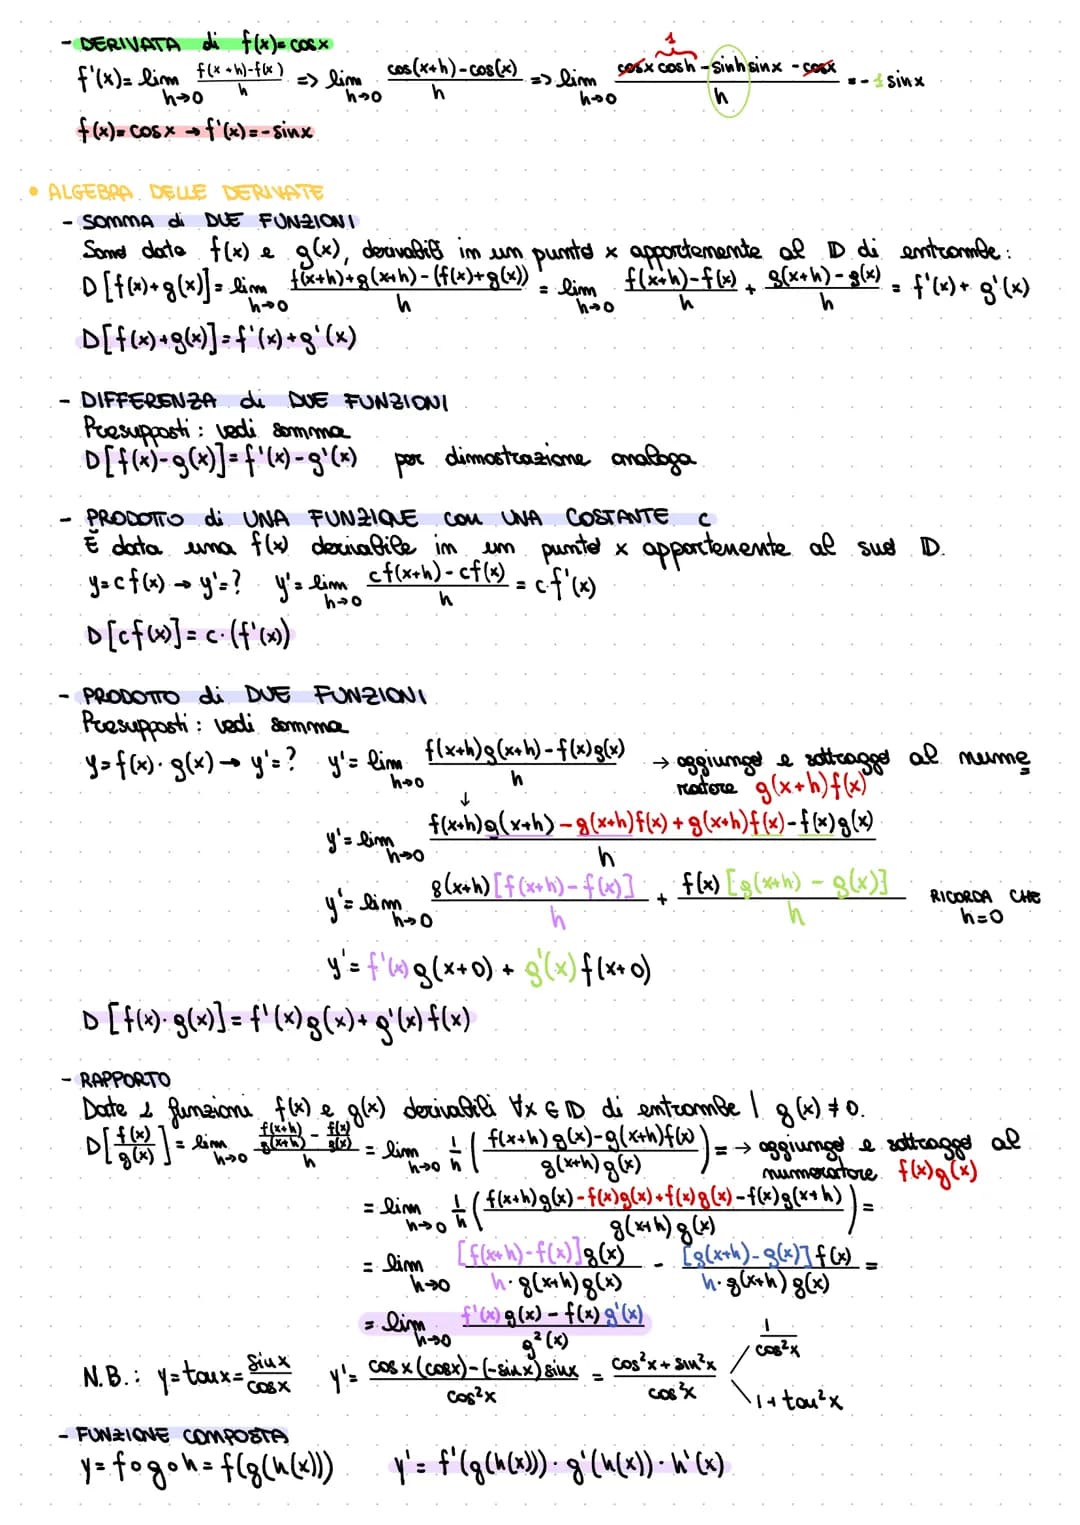 - DERIVATA di f(x)=cosx
f'(x)= lim h→0 f(x+h)-f(x) / h => lim h→0 cos(x+h)-cos(x) / h => lim h→0 cosx cosh - sinh sinx - cosx / h = -1 sinx
1
f(x)= cosx → f'(x)=-sinx
• ALGEBRA DELLE DERIVATE
- SOMMA di DUE FUNZIONI
Sono date f(x) e g(x), derivabili in un punto x appartenente al D di entrambe:
D[f(x)+g(x)]= lim h→0 f(x+h)+g(x+h)-(f(x)+g(x)) / h = lim h→0 f(x+h)-f(x) / h + g(x+h)-g(x) / h = f'(x)+g'(x)
D[f(x)+g(x)]=f'(x)+g'(x)
- DIFFERENZA di DUE FUNZIONI
Presupposti: vedi somma
D[f(x)-g(x)]=f'(x)-g'(x) per dimostrazione analoga
- PRODOTTO di UNA FUNZIONE con UNA COSTANTE c
È data una f(x) derivabile in un punto x appartenente al suo D.
y=cf(x) → y'=? y'= lim h→0 cf(x+h)-cf(x) / h = c f'(x)
D[cf(x)]= c·(f'(x))
- PRODOTTO di DUE FUNZIONI
Presupposti: vedi somma
y=f(x)·g(x) → y'=? y'= lim h→0 f(x+h)g(x+h)-f(x)g(x) / h → aggiungo e sottraggo al nume
ratore g(x+h)f(x)
↓
y'= lim h→0 f(x+h)g(x+h)-g(x+h)f(x)+g(x+h)f(x)-f(x)g(x) / h
y'= lim h→0 g(x+h)[f(x+h)-f(x)] / h + f(x)[g(x+h)-g(x)] / h RICORDA CHE
h=0
y'= f'(x)g(x+0) + g'(x)f(x+0)
D[f(x)·g(x)]=f'(x)g(x)+g'(x)f(x)
- RAPPORTO
Date 2 funzioni f(x) e g(x) derivabili ∀x∈D di entrambe | g(x)≠0.
D[f(x)/g(x)]= lim h→0 f(x+h)/g(x+h) - f(x)/g(x) / h = lim h→0 1/h (f(x+h)g(x)-g(x+h)f(x) / g(x+h)g(x)) = → aggiungo e sottraggo al
numeratore f(x)g(x)
= lim h→0 1/h (f(x+h)g(x)-f(x)g(x)+f(x)g(x)-f(x)g(x+h) / g(x+h)g(x)) =
= lim h→0 [f(x+h)-f(x)]g(x) / h·g(x+h)g(x) - [g(x+h)-g(x)]f(x) / h·g(x+h)g(x) =
= lim h→0 f'(x)g(x)-f(x)g'(x) / g²(x)
N.B.: y=tanx= sinx/cosx y'= cosx(cosx)-(-sinx)sinx / cos²x = cos²x+sin²x / cos²x
1/cos²x
1+tan²x
- FUNZIONE COMPOSTA
y=f∘g∘h=f(g(h(x))) y'= f'(g(h(x)))·g'(h(x))·h'(x)